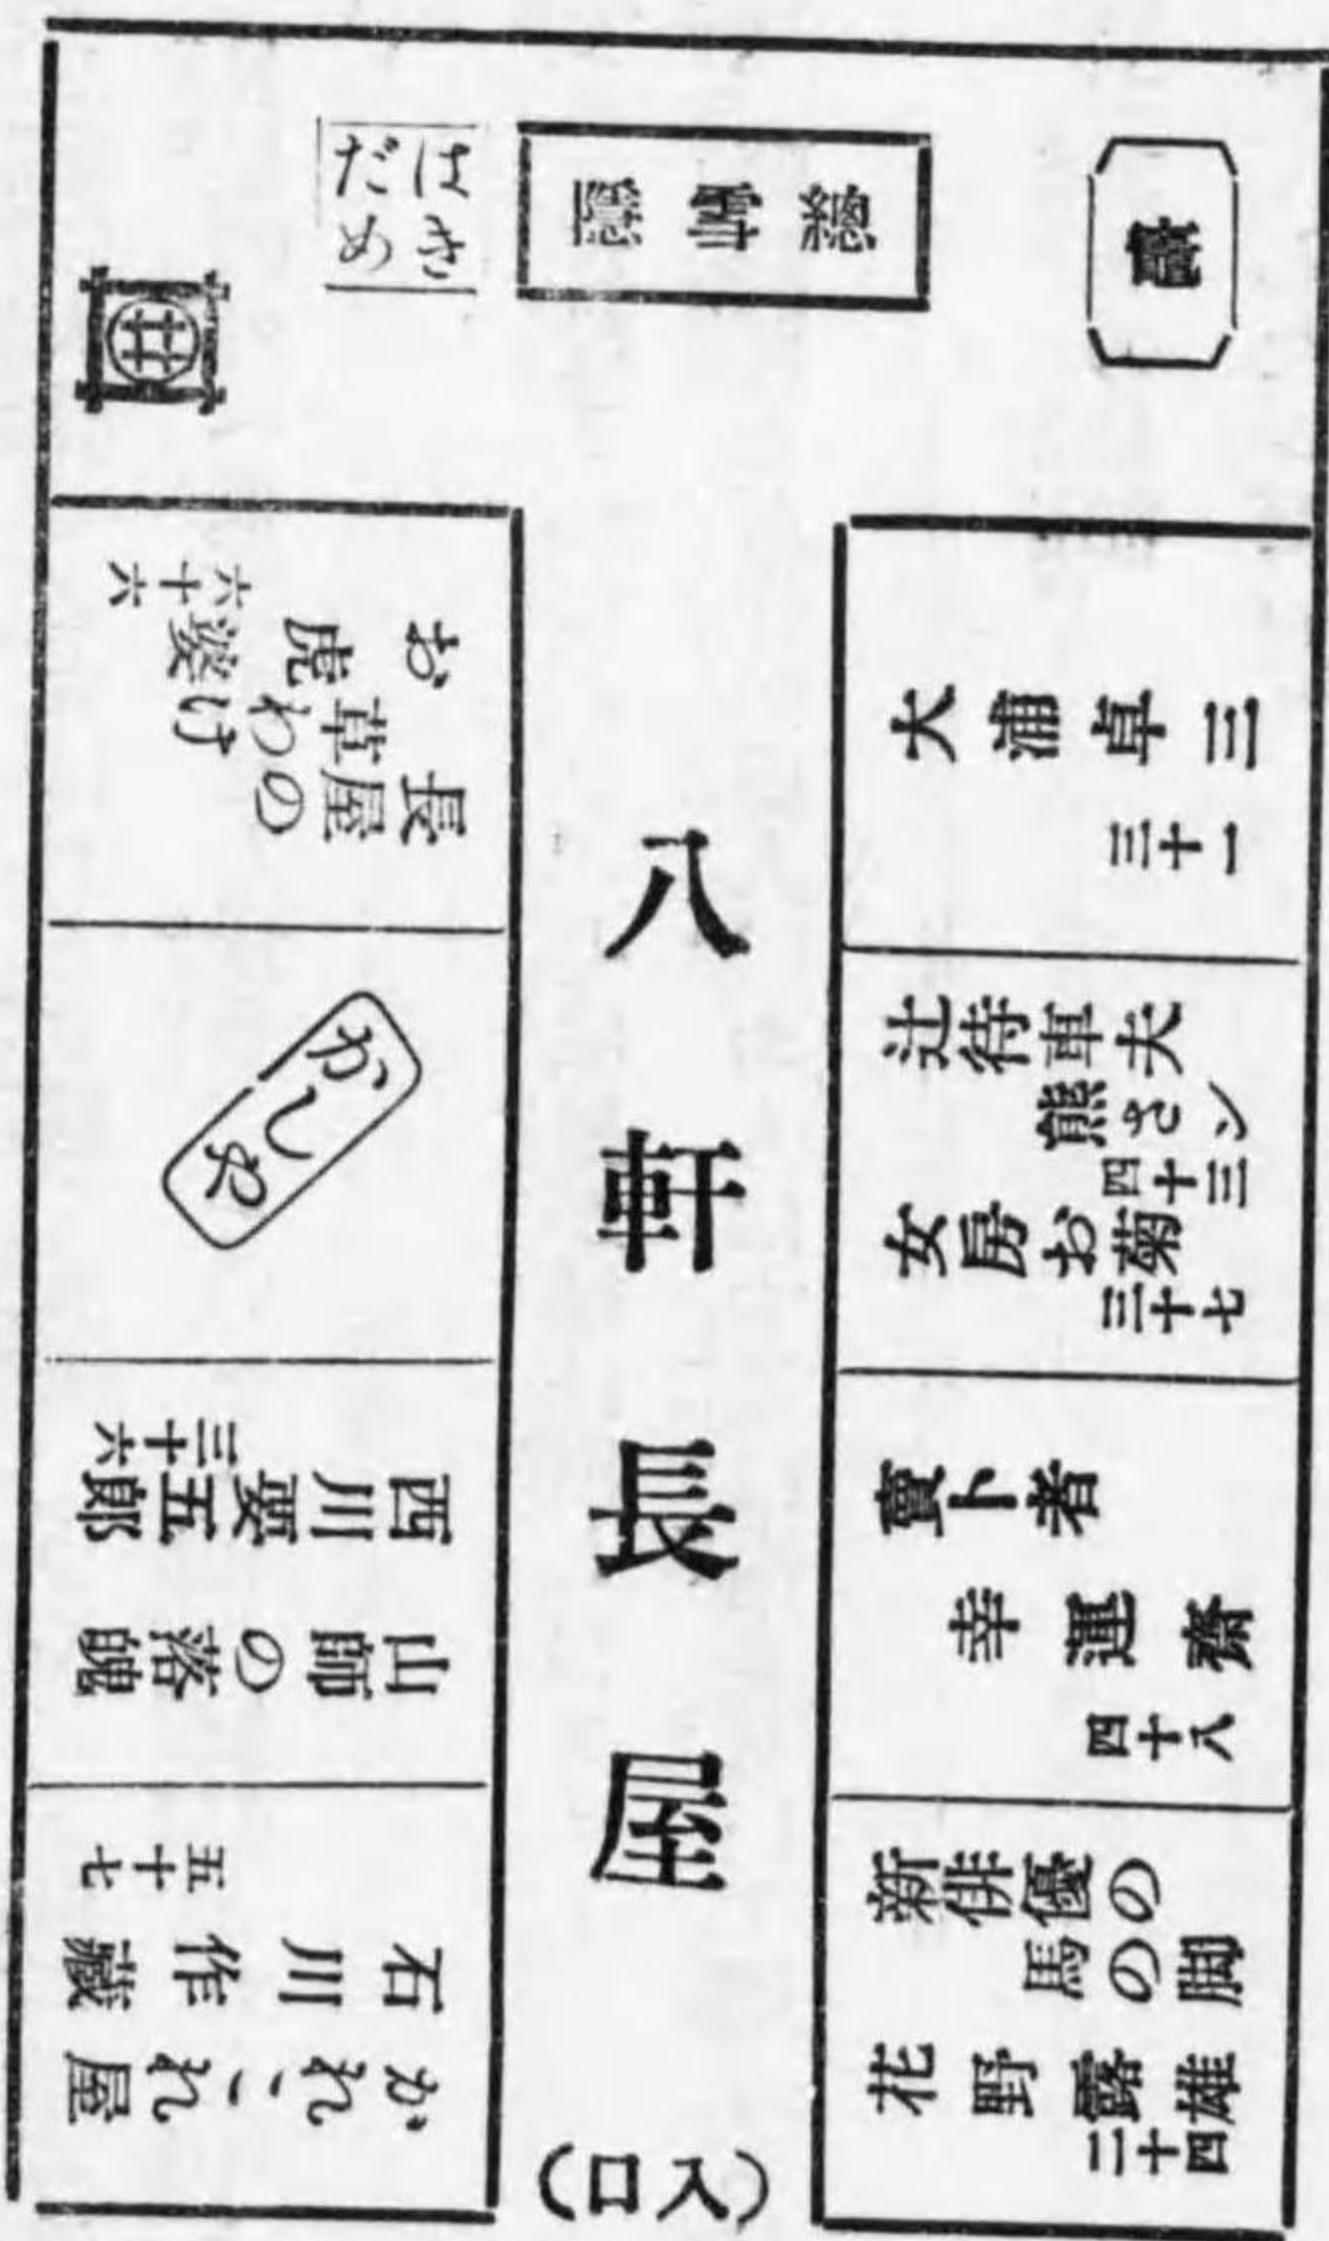 總雪隱
はきだめ
井
八軒長屋
(入口)
大浦卓三
三十一
辻待車夫
熊さン
四十三
女房お菊
三十七
賣卜者
幸運齋
四十八
新俳優の
馬の脚
花野露雄
二十四
長屋の
草わけ
お虎婆
六十六
かしや
山師の落魄
西川要五郎
三十六
かれこれ屋
石川作藏
五十七